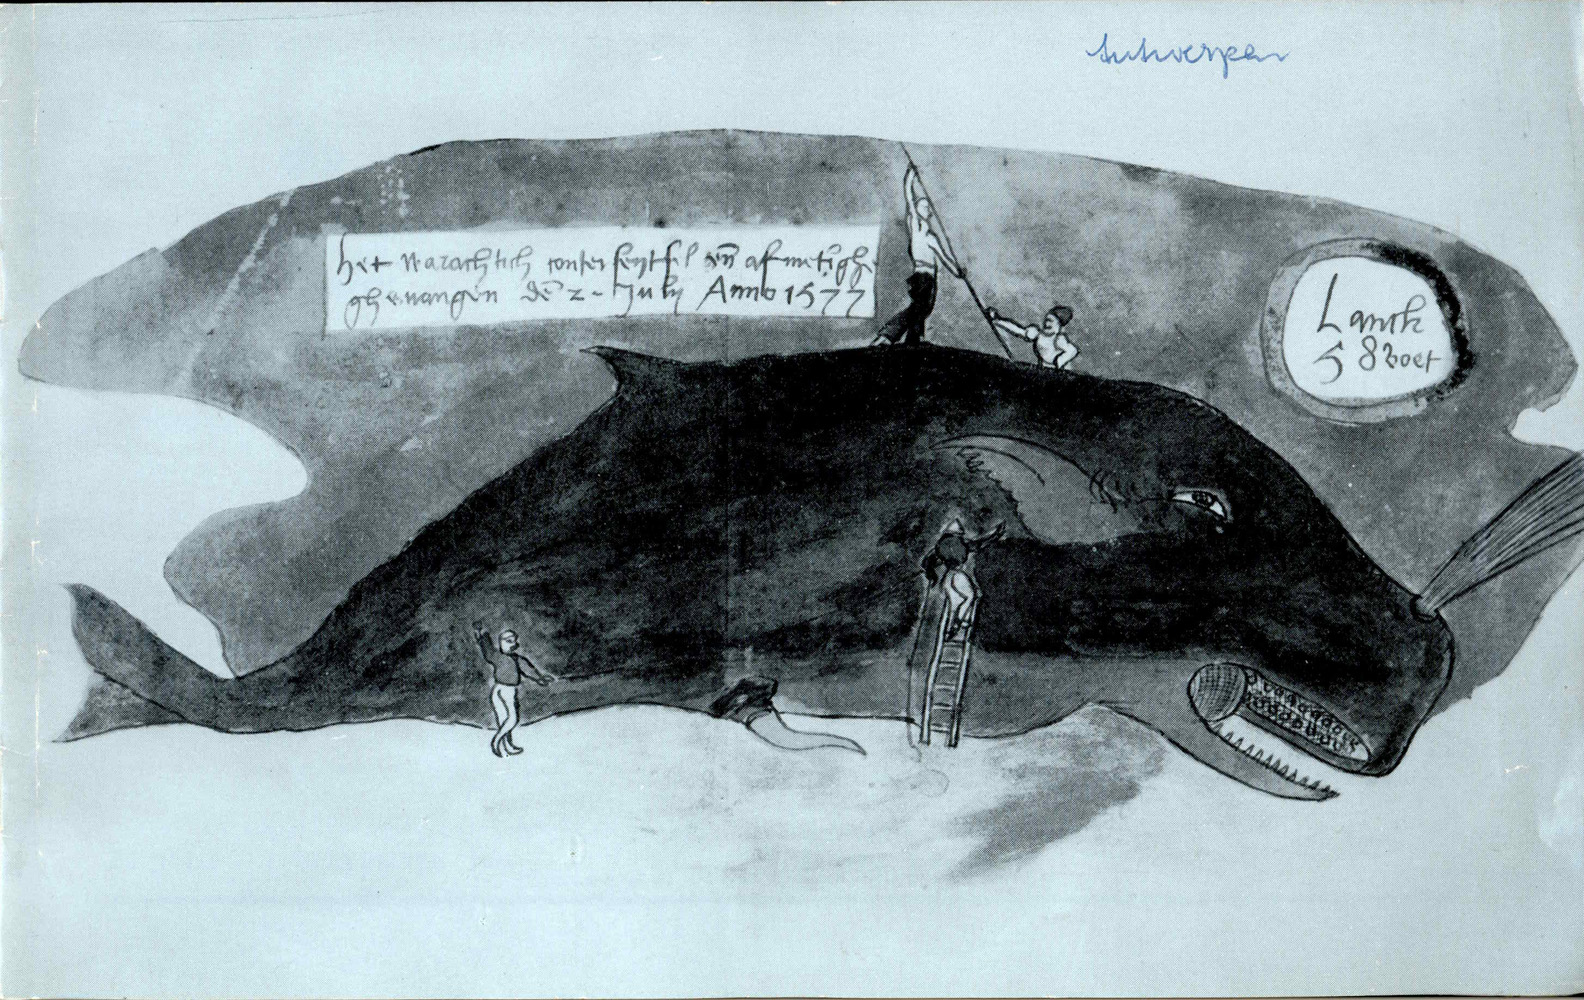 Antwerpen
het warachtich conterfeytsel en̄ afmeti̅ghe
ghevangen de̅ 2. July Anno 1577
Lanck
58 voet